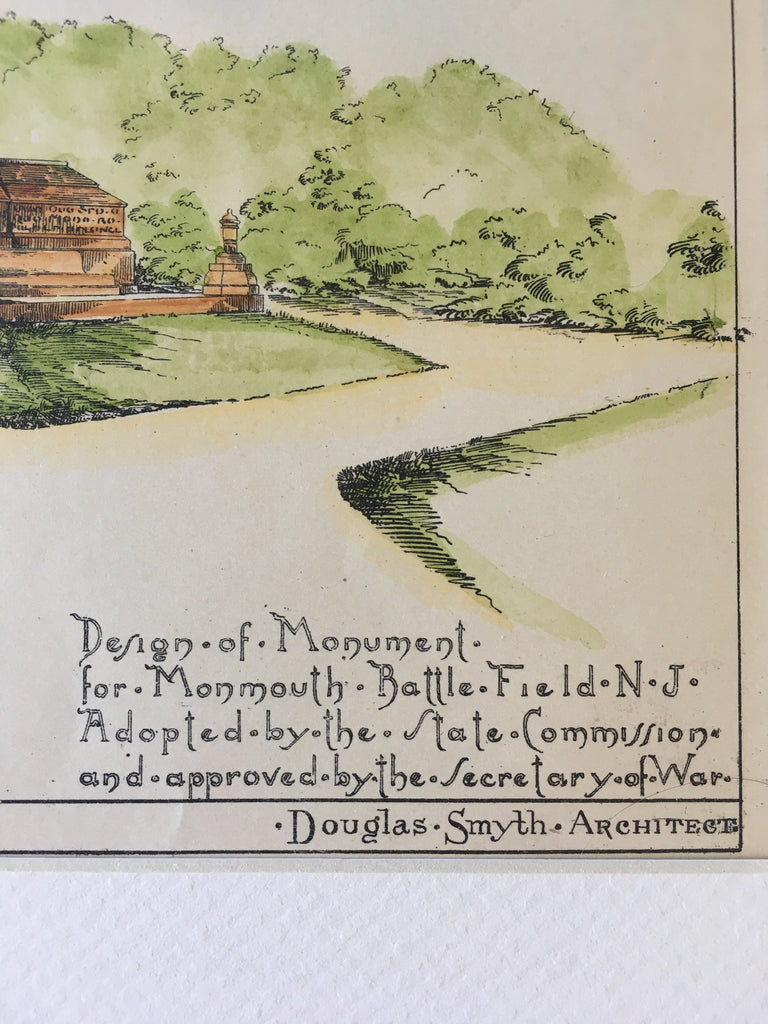 Design·of·Monument·
for·Monmouth·Battle·Field·N·J·
Adopted·by·the·State·Commission·
and·approved·by·the·Secretary·of·War·
·Douglas·Smyth·ARCHITECT·